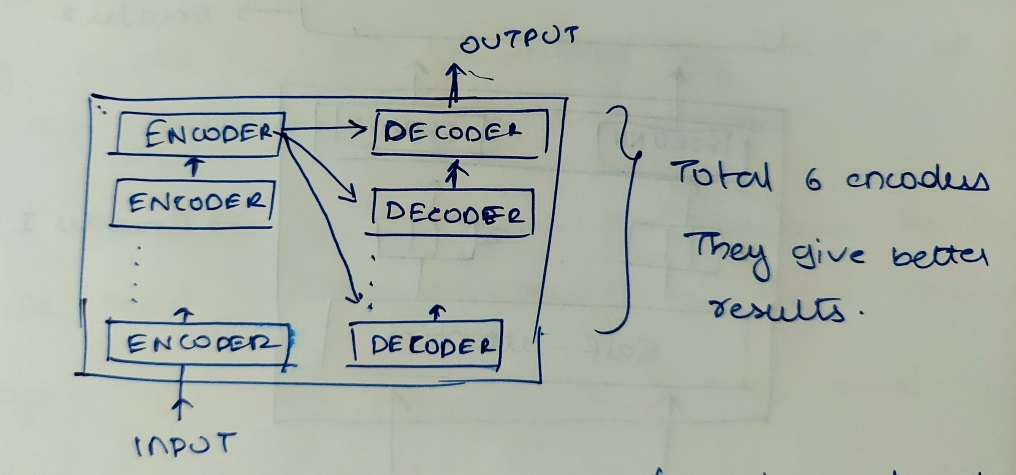 OUTPUT
ENCODER DECODER
ENCODER DECODER
ENCODER DECODER
INPUT
Total 6 encoders
They give better
results.